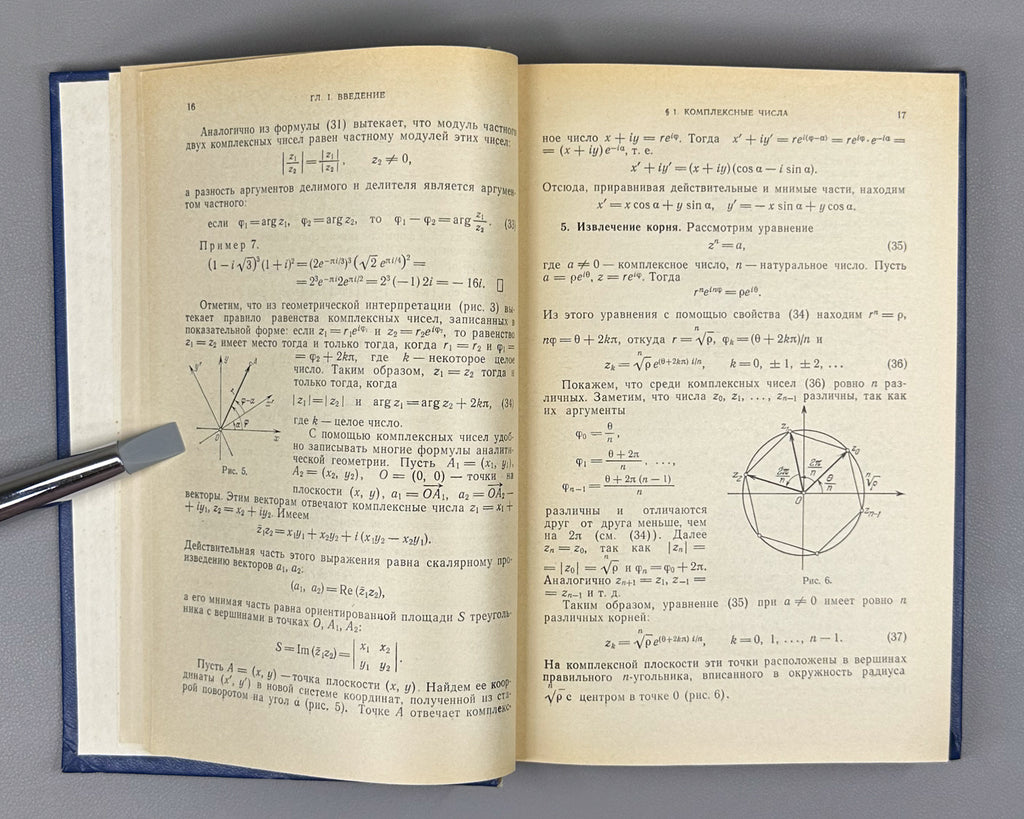 16
ГЛ. I. ВВЕДЕНИЕ
Аналогично из формулы (31) вытекает, что модуль частного
двух комплексных чисел равен частному модулей этих чисел:
|z₁/z₂| = |z₁|/|z₂|, z₂ ≠ 0,
а разность аргументов делимого и делителя является аргумен-
том частного:
если φ₁ = arg z₁, φ₂ = arg z₂, то φ₁ − φ₂ = arg z₁/z₂. (33)
Пример 7.
(1 − i√3)³ (1 + i)² = (2e^{−πi/3})³ (√2 e^{πi/4})² =
= 2³e^{−πi}2e^{πi/2} = 2³ (−1) 2i = − 16i. □
Отметим, что из геометрической интерпретации (рис. 3) вы-
текает правило равенства комплексных чисел, записанных в
показательной форме: если z₁ = r₁e^{iφ₁} и z₂ = r₂e^{iφ₂}, то равенство
z₁ = z₂ имеет место тогда и только тогда, когда r₁ = r₂ и φ₁ =
= φ₂ + 2kπ, где k — некоторое целое
число. Таким образом, z₁ = z₂ тогда и
только тогда, когда
|z₁| = |z₂| и arg z₁ = arg z₂ + 2kπ, (34)
где k — целое число.
С помощью комплексных чисел удоб-
но записывать многие формулы аналити-
ческой геометрии. Пусть A₁ = (x₁, y₁),
A₂ = (x₂, y₂), O = (0, 0) — точки на
y' y A
r
φ−α
α φ
O x
Рис. 5.
плоскости (x, y), a₁ = OA₁, a₂ = OA₂ —
векторы. Этим векторам отвечают комплексные числа z₁ = x₁ +
+ iy₁, z₂ = x₂ + iy₂. Имеем
z̄₁z₂ = x₁y₁ + x₂y₂ + i (x₁y₂ − x₂y₁).
Действительная часть этого выражения равна скалярному про-
изведению векторов a₁, a₂:
(a₁, a₂) = Re (z̄₁z₂),
а его мнимая часть равна ориентированной площади S треуголь-
ника с вершинами в точках O, A₁, A₂:
S = Im (z̄₁z₂) = | x₁ x₂ |
| y₁ y₂ |.
Пусть A = (x, y) — точка плоскости (x, y). Найдем ее коор-
динаты (x′, y′) в новой системе координат, полученной из ста-
рой поворотом на угол α (рис. 5). Точке A отвечает комплекс-
§ 1. КОМПЛЕКСНЫЕ ЧИСЛА
17
ное число x + iy = re^{iφ}. Тогда x′ + iy′ = re^{i(φ−α)} = re^{iφ}·e^{−iα} =
= (x + iy) e^{−iα}, т. е.
x′ + iy′ = (x + iy) (cos α − i sin α).
Отсюда, приравнивая действительные и мнимые части, находим
x′ = x cos α + y sin α, y′ = − x sin α + y cos α.
5. Извлечение корня. Рассмотрим уравнение
zⁿ = a, (35)
где a ≠ 0 — комплексное число, n — натуральное число. Пусть
a = ρe^{iθ}, z = re^{iφ}. Тогда
rⁿe^{inφ} = ρe^{iθ}.
Из этого уравнения с помощью свойства (34) находим rⁿ = ρ,
nφ = θ + 2kπ, откуда r = ⁿ√ρ, φₖ = (θ + 2kπ)/n и
zₖ = ⁿ√ρ e^{(θ+2kπ) i/n}, k = 0, ± 1, ± 2, ... (36)
Покажем, что среди комплексных чисел (36) ровно n раз-
личных. Заметим, что числа z₀, z₁, ..., zₙ₋₁ различны, так как
их аргументы
φ₀ = θ/n,
φ₁ = (θ + 2π)/n, ...,
φₙ₋₁ = (θ + 2π (n − 1))/n
различны и отличаются
друг от друга меньше, чем
на 2π (см. (34)). Далее
zₙ = z₀, так как |zₙ| =
= |z₀| = ⁿ√ρ и φₙ = φ₀ + 2π.
Аналогично zₙ₊₁ = z₁, z₋₁ =
= zₙ₋₁ и т. д.
z₁
z₀
z₂
2π/n 2π/n θ/n ⁿ√ρ
O
zₙ₋₁
Рис. 6.
Таким образом, уравнение (35) при a ≠ 0 имеет ровно n
различных корней:
zₖ = ⁿ√ρ e^{(θ+2kπ) i/n}, k = 0, 1, ..., n − 1. (37)
На комплексной плоскости эти точки расположены в вершинах
правильного n-угольника, вписанного в окружность радиуса
ⁿ√ρ с центром в точке 0 (рис. 6).